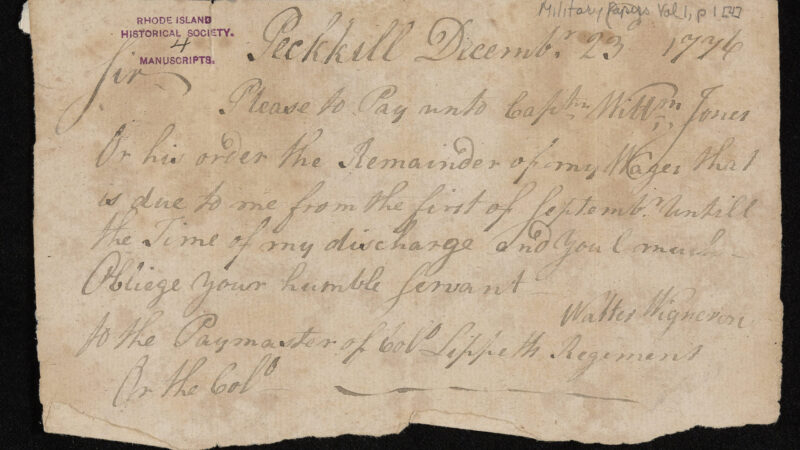 Military Papers Vol 1, p 1 [4]
RHODE ISLAND
HISTORICAL SOCIETY.
4
MANUSCRIPTS.
Peckkill Decembr. 23d 1776
Sir
Please to Pay unto Captn Willm Jones
Or his order the Remainder of my Wages that
is due to me from the first of Septembr. Untill
the Time of my discharge and You l much
Obliege your humble Servant
Walter Vigneron
to the Paymaster of Colo Lippeth Regiment
Or the Colo